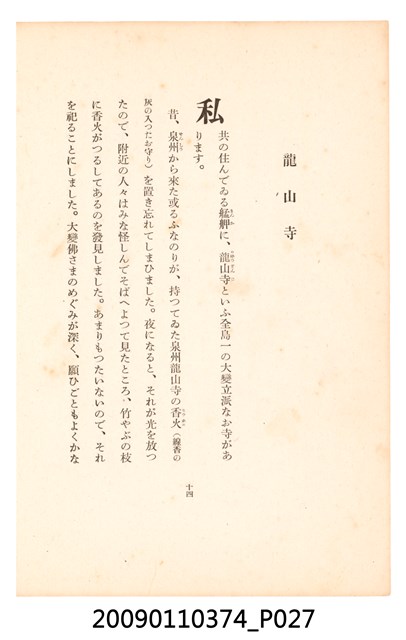 龍山寺
私共の住んでゐる艋舺に、龍山寺といふ全島一の大變立派なお寺があ
ります。
昔、泉州から來た或るふなのりが、持つてゐた泉州龍山寺の香火(線香の
灰の入つたお守り)を置き忘れてしまひました。夜になると、それが光を放つ
たので、附近の人々はみな怪しんでそばへよつて見たところ、竹やぶの枝
に香火がつるしてあるのを發見しました。あまりもつたいないので、それ
を祀ることにしました。大變佛さまのめぐみが深く、願ひごともよくかな
十四
20090110374_P027